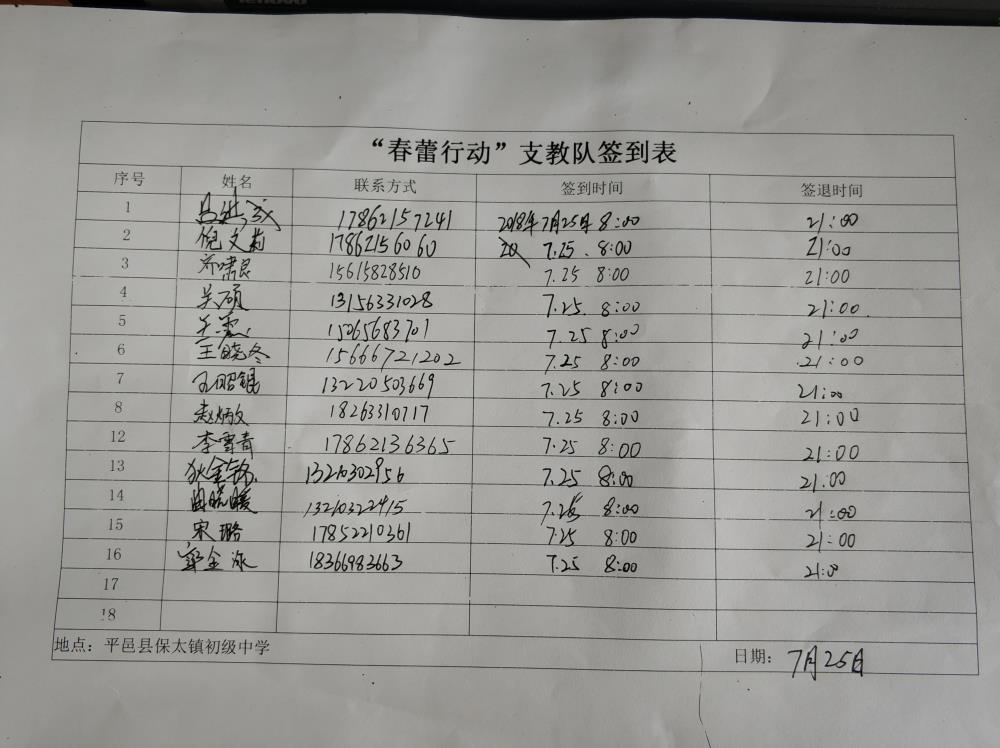 lenovo
“春蕾行动”支教队签到表
序号 姓名 联系方式 签到时间 签退时间
1 17862157241 2018年7月25日 8:00 21:00
2 倪文莉 17862156060 7.25. 8:00 21:00
3 乔啸民 15615828510 7.25 8:00 21:00
4 吴硕 13156331028 7.25. 8:00 21:00
5 15065683701 7.25 8:00 21:00
6 王晓冬 15666721202 7.25 8:00 21:00
7 孔昭锟 13220503669 7.25 8:00 21:00
8 赵炳文 18263310717 7.25 8:00 21:00
12 李雪青 17862136365 7.25 8:00 21:00
13 狄金锦 13210302956 7.25 8:00 21:00
14 曲晓暖 13210322415 7.25 8:00 21:00
15 宋璐 17852210361 7.25 8:00 21:00
16 18366983663 7.25 8:00 21:0
17
18
地点：平邑县保太镇初级中学 日期：7月25日